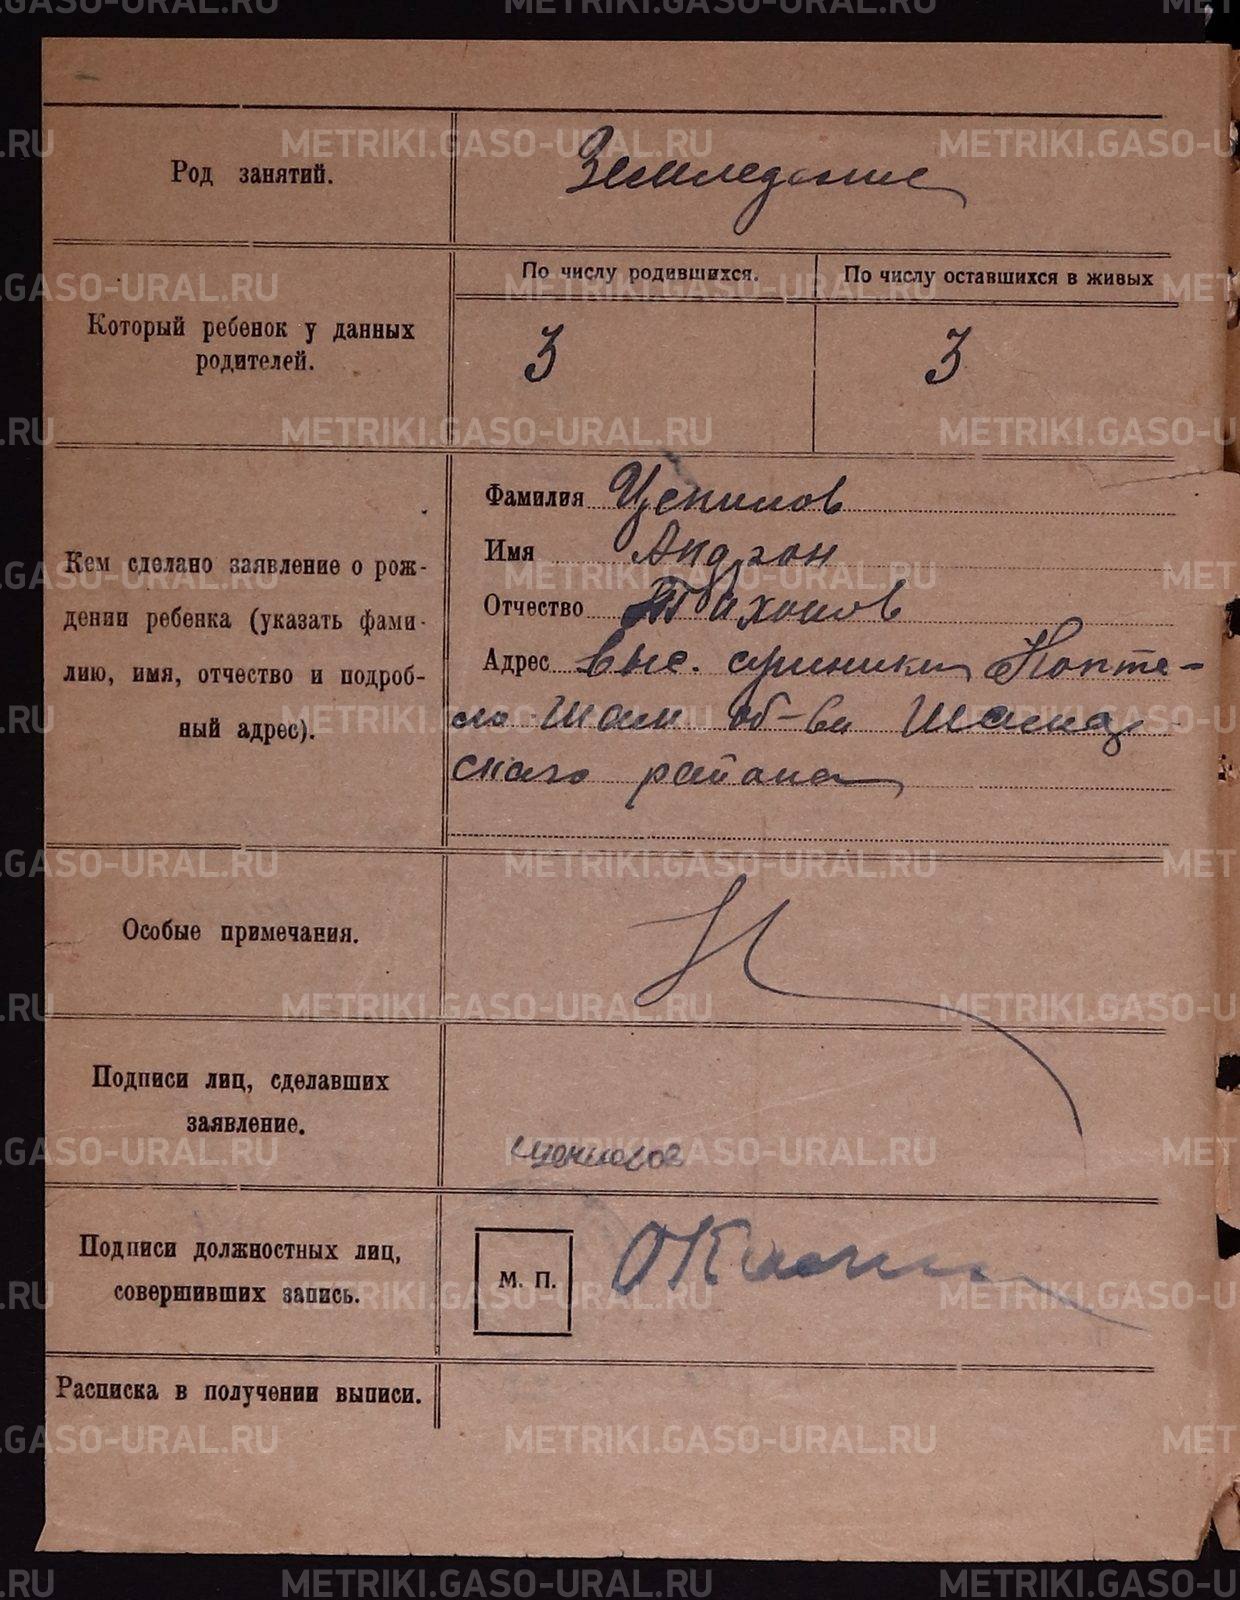 METRIKI.GASO-URAL.RU
Род занятий.
Земледелие
Который ребенок у данных
родителей.
По числу родившихся.
По числу оставшихся в живых
3
3
Кем сделано заявление о рож-
дении ребенка (указать фами-
лию, имя, отчество и подроб-
ный адрес).
Фамилия
Имя Андрон
Отчество Тихонов
Адрес выс.
района
Особые примечания.
Подписи лиц, сделавших
заявление.
Подписи должностных лиц,
совершивших запись.
М. П.
Расписка в получении выписи.